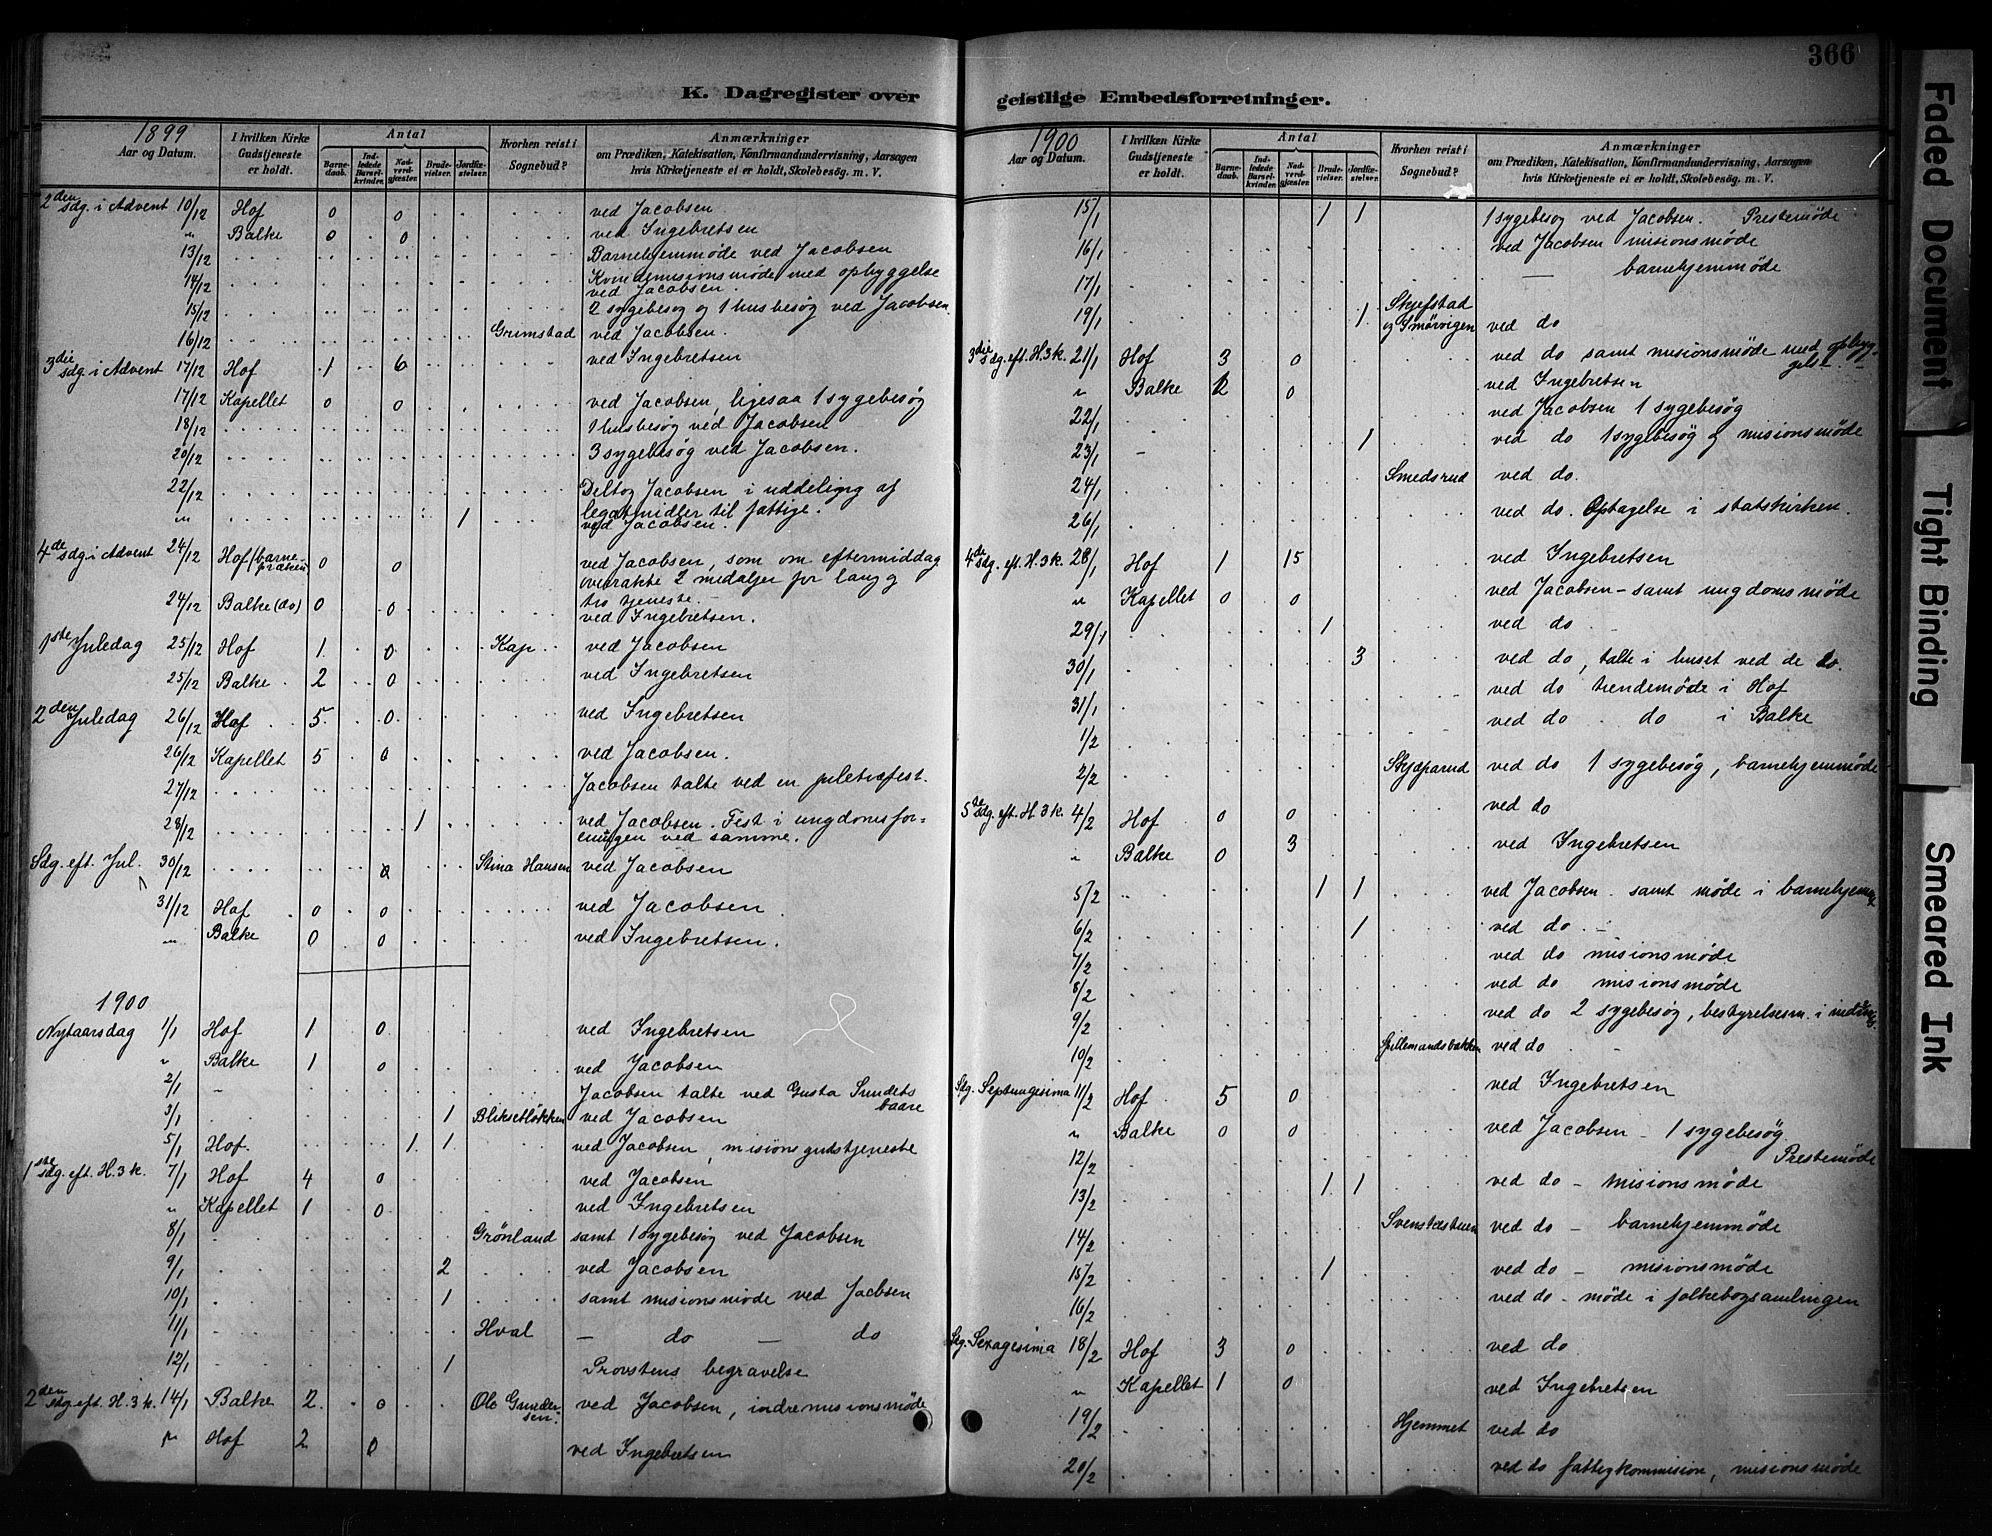 366
K. Dagregister over
geistlige Embedsforretninger.
1899
Aar og Datum.
I hvilken Kirke Gudstjeneste er holdt.
Antal
Barne-daab.
Ind-ledede Barsel-kvinder.
Nad-verd-gjæster.
Brude-vielser.
Jordfæ-stelser.
Hvorhen reist i Sognebud?
Anmærkninger
om Prædiken, Katekisation, Konfirmandundervisning, Aarsagen
hvis Kirketjeneste ei er holdt, Skolebesøg. m. V.
2den sdg. i Advent 10/12 Hof 0 0 ved Jacobsen
" Balke 0 0 ved Ingebretsen
13/12 Barnehjemmøde ved Jacobsen
14/12 Kvindemisionsmøde med opbyggelse
ved Jacobsen.
15/12 2 sygebesøg og 1 husbesøg ved Jacobsen
16/12 Grimstad ved Jacobsen.
3die sdg. i Advent 17/12 Hof 1 6 ved Ingebretsen
17/12 Kapellet 0 0 ved Jacobsen, ligesaa 1 sygebesøg
18/12 1 husbesøg ved Jacobsen
20/12 3 sygebesøg ved Jacobsen.
22/12 Deltog Jacobsen i uddeling af
legatmidler til fattige.
" 1 ved Jacobsen.
4de sdg. i Advent 24/12 Hof (barnepræken) 0 0 ved Jacobsen, som om eftermiddag
overrakte 2 medaljer for lang og
tro tjeneste.
24/12 Balke (do) 0 0 ved Ingebretsen.
1ste Juledag 25/12 Hof 1 0 Kap ved Jacobsen
25/12 Balke 2 0 ved Ingebretsen
2den Juledag 26/12 Hof 5 0 ved Ingebretsen
26/12 Kapellet 5 0 ved Jacobsen.
27/12 Jacobsen talte ved en juletræfest.
28/12 1 ved Jacobsen. Fest i ungdomsfor=
eningen ved samme.
Sdg. eft. Jul. 30/12 Stina Hansen ved Jacobsen
31/12 Hof 0 0 ved Jacobsen
" Balke 0 0 ved Ingebretsen.
1900
Nytaarsdag 1/1 Hof 1 0 ved Ingebretsen
" Balke 1 0 ved Jacobsen
2/1 Jacobsen talte ved Gusta Sundets
baare
3/1 1 Blikset­løkken ved Jacobsen
5/1 Hof. 1 1 ved Jacobsen, misionsgudstjeneste
1ste sdg. eft. H. 3 k. 7/1 Hof 4 0 ved Jacobsen
" Kapellet 1 0 ved Ingebretsen
8/1 Grönland samt 1 sygebesøg ved Jacobsen
9/1 2 ved Jacobsen
10/1 1 samt misionsmøde ved Jacbsen
11/1 Hval — do — do
12/1 1 Provstens begravelse
2den sdg. eft. H. 3 k. 14/1 Balke 2 0 Ole Gunder-
sen. ved Jacobsen, indremisionsmøde
" Hof 2 0 ved Ingebretsen
1900
Aar og Datum.
I hvilken Kirke Gudstjeneste er holdt.
Antal
Barne-daab.
Ind-ledede Barsel-kvinder.
Nad-verd-gjæster.
Brude-vielser.
Jordfæ-stelser.
Hvorhen reist i Sognebud?
Anmærkninger
om Prædiken, Katekisation, Konfirmandundervisning, Aarsagen
hvis Kirketjeneste ei er holdt, Skolebesøg. m. V.
15/1 1 1 1 sygebesøg ved Jacobsen. Prestemøde
16/1 ved Jacobsen misionsmøde
17/1 — barnehjemmøde
19/1 1 Skjefstad
og Smörvigen ved do
3die sdg. eft. H. 3 k. 21/1 Hof 3 0 ved do samt misionsmøde med opbyg-
gelse.
" Balke 2 0 ved Ingebretsen
22/1 ved Jacobsen 1 sygebesøg
23/1 1 ved do 1 sygebesøg og misionsmøde
24/1 Smedsrud ved do.
26/1 ved do. Optagelse i statskirken.
4de sdg. eft. H. 3 k. 28/1 Hof 1 15 ved Ingebretsen
" Kapellet 0 0 ved Jacobsen - samt ungdomsmøde
29/1 1 ved do -
30/1 3 ved do, talte i huset ved de do.
31/1 ved do trendemøde i Hof
1/2 ved do. do i Balke
2/2 Skjæparud ved do 1 sygebesøg, barnehjemmøde
5te sdg. eft. H 3 k. 4/2 Hof 0 0 ved do
" Balke 0 3 ved Ingebretsen
5/2 1 1 ved Jacobsen. samt møde i barnehjemme
6/2 1 ved do. -
7/2 ved do misionsmøde
8/2 ved do misionsmøde
9/2 ved do 2 sygebesøg, bestyrelsesm. i
10/2 Spillemandsbakken ved do -
Sdg. Septuagesima 11/2 Hof 5 0 ved Ingebretsen
" Balke 0 0 ved Jacobsen - 1 sygebesøg.
12/2 Prestemøde
13/2 1 1 ved do - misionsmøde
14/2 Svenstastuen ved do - barnehjemmøde
15/2 1 ved do - misionsmøde
16/2 ved do - møde i folkebogsamlingen
Sdg. Sexagesima 18/2 Hof 3 0 ved do
" Kapellet 1 0 ved Ingebretsen
19/2 Hjemmet ved do
20/2 ved do fattigkommision, misionsmøde
Faded Document
Tight Binding
Smeared Ink